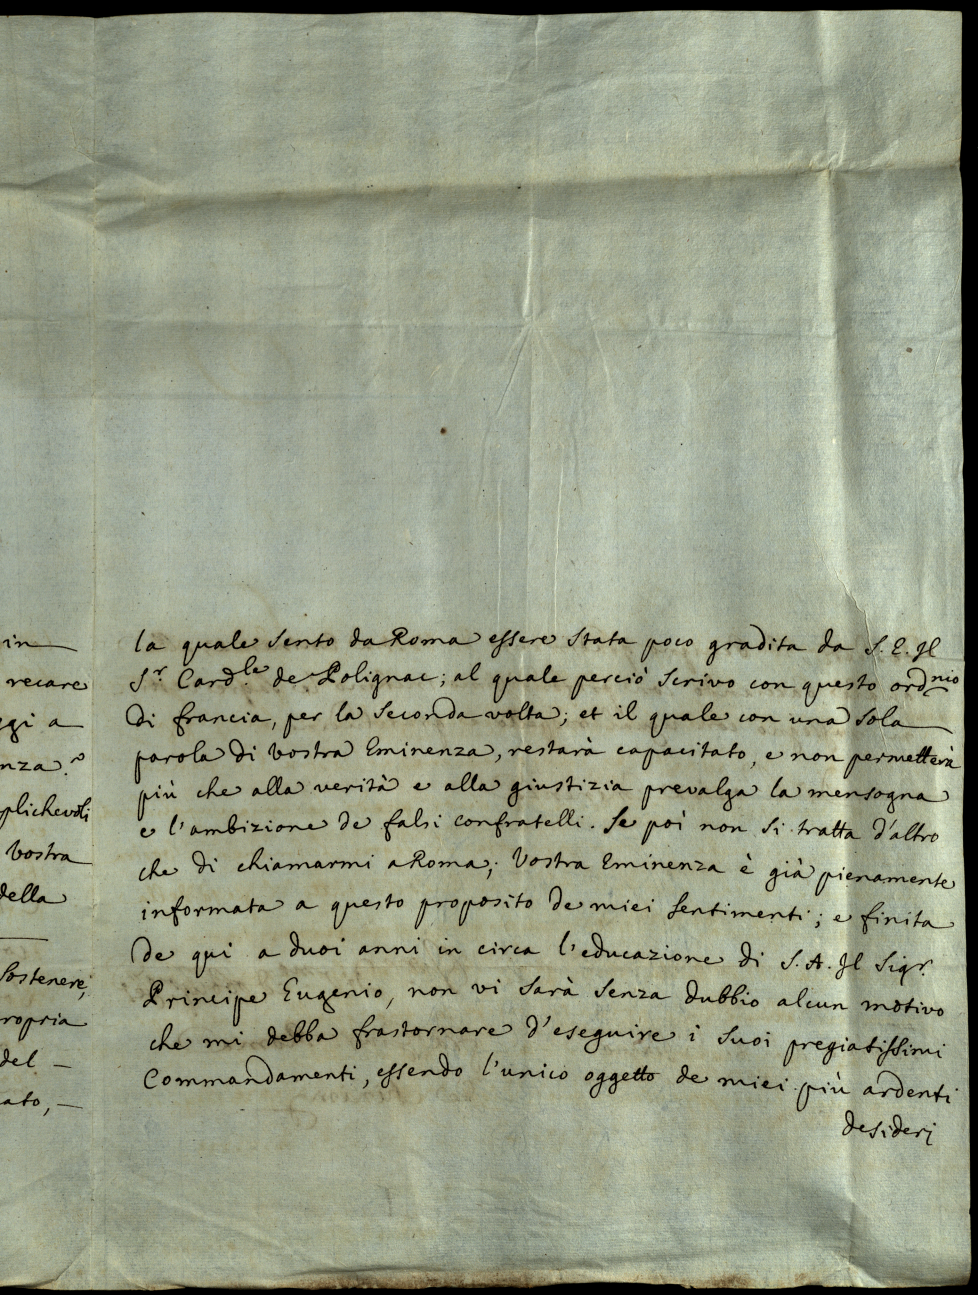 in
recare
ggi a
nza.
plichevoli
vostra
della
sostenere,
ropria
del –
ato, –
la quale sento da Roma essere stata poco gradita da S. E. Jl
Sr. Card.le de Polignac; al quale perciò scrivo con questo ordnio
di francia, per la seconda volta; et il quale con una sola
parola di vostra Eminenza, restarà capacitato, e non permetterà
più che alla verità e alla giustizia prevalga la mensogna
e l'ambizione de falsi confratelli. Se poi non si tratta d'altro
che di chiamarmi a Roma; vostra Eminenza è già pienamente
informata a questo proposito de miei sentimenti; e finita
de qui a duoi anni in circa l'educazione di S. A. Jl Sigr.
Principe Eugenio, non vi sarà senza dubbio alcun motivo
che mi debba frastornare d'eseguire i suoi pregiatissimi
Commandamenti, essendo l'unico oggetto de miei più ardenti
desiderj